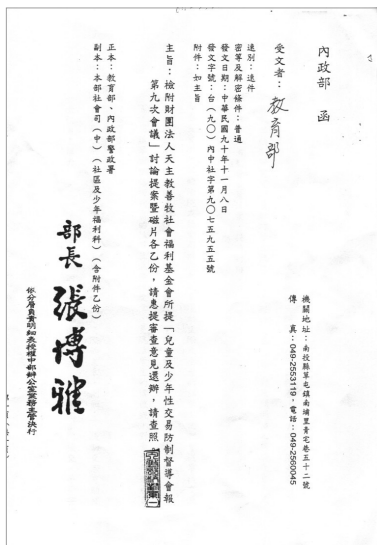 內政部　函
受文者：教育部
機關地址：南投縣草屯鎮南埔里青宅巷五十二號
傳　真：049-2553119，電話：049-2560045
速別：速件
密等及解密條件：普通
發文日期：中華民國九十年十一月八日
發文字號：台（九〇）內中社字第九〇七五九五五號
附件：如主旨
主旨：檢附財團法人天主教善牧社會福利基金會所提「兒童及少年性交易防制督導會報
第九次會議」討論提案暨磁片各乙份，請惠提審查意見還辦，請查照。
正本：教育部、內政部警政署
副本：本部社會司（中）（社區及少年福利科）（含附件乙份）
部長 張博雅
依分層負責明細表授權中部辦公室業務主管決行